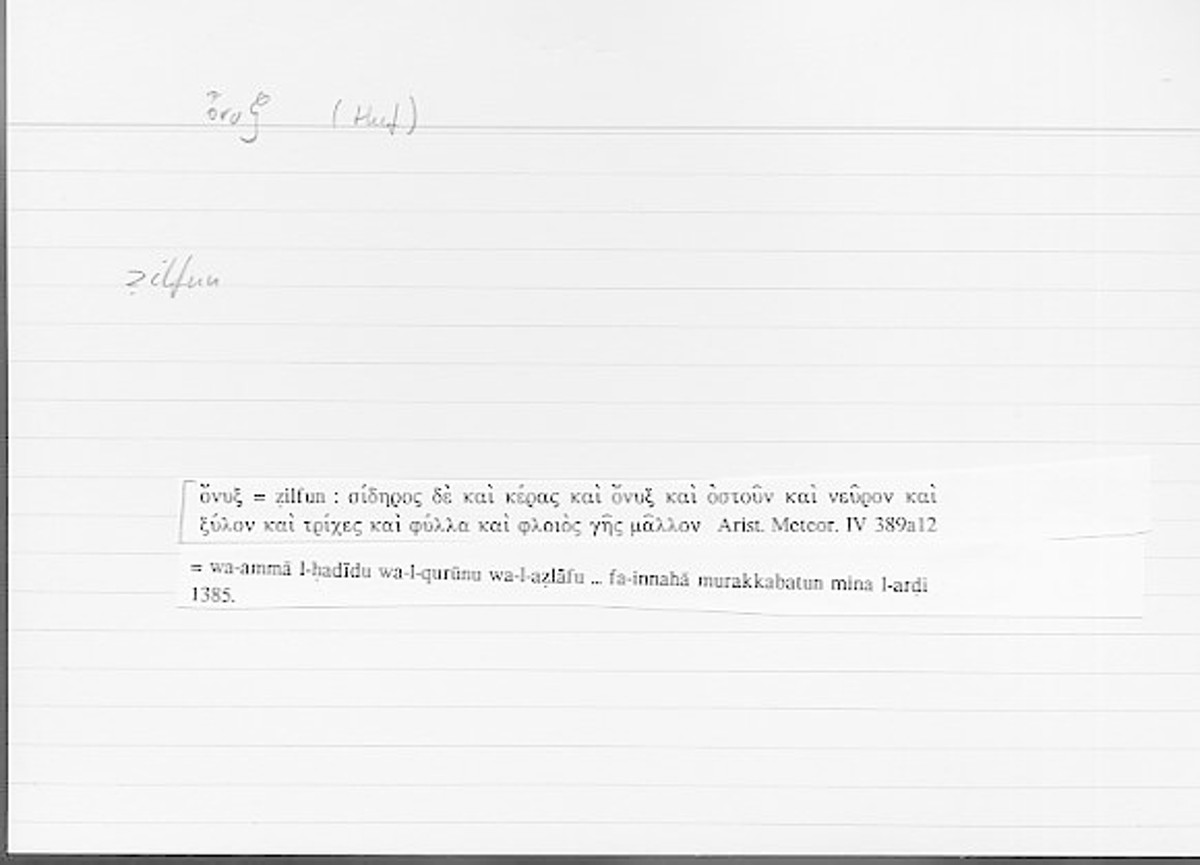 ὄνυξ (Huf)
ẓilfun
ὄνυξ = ẓilfun : σίδηρος δὲ καὶ κέρας καὶ ὄνυξ καὶ ὀστοῦν καὶ νεῦρον καὶ
ξύλον καὶ τρίχες καὶ φύλλα καὶ φλοιὸς γῆς μᾶλλον Arist. Meteor. IV 389a12
= wa-ammā l-ḥadīdu wa-l-qurūnu wa-l-aẓlāfu ... fa-innahā murakkabatun mina l-arḍi
1385.